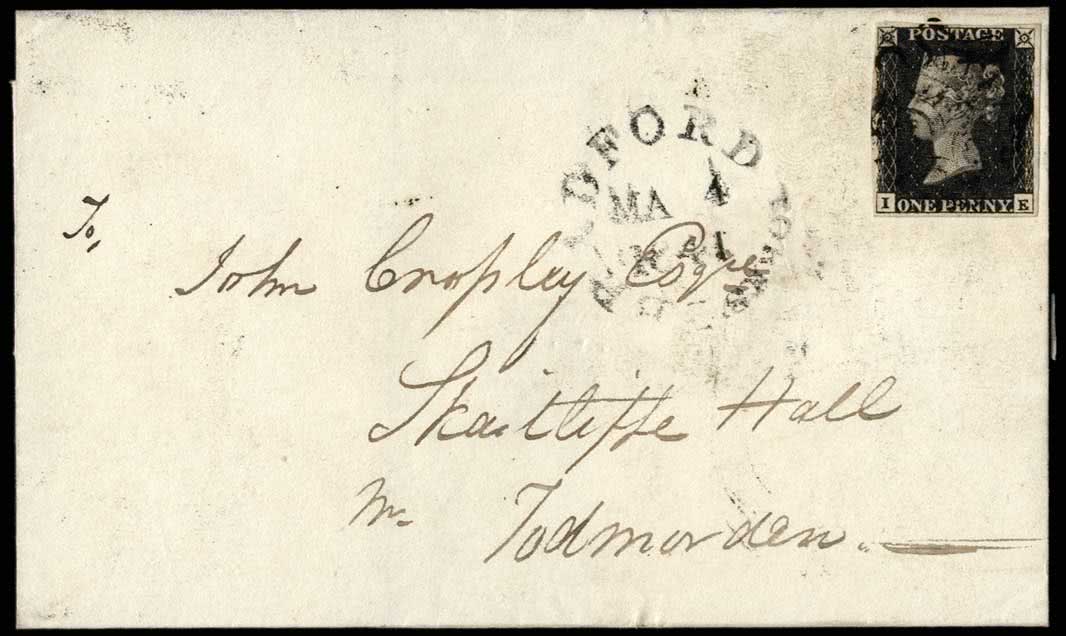 POSTAGE
I ONE PENNY. E
DFORD
MA 4
To,
John Cropley Esqre
Skaitliffe Hall
Nr Todmorden.